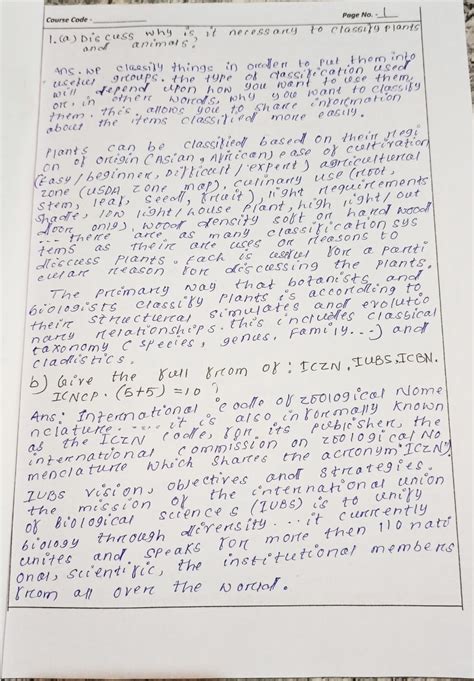 Course Code -
Page No. - 1
1.(a) Discuss why is it necessary to classify plants
and animals?
Ans. we classify things in order to put them into
useful groups. the type of classification used
will depend upon how you want to use them,
or, in other words, why you want to classify
them. this allows you to share information
about the items classified more easily.
Plants can be classified based on their regi
on of origin (Asian, African) ease of cultivation
(Easy/beginner, Difficult/expert) agricultural
zone (USDA zone map), culinary use (root,
stem, leaf, seed, fruit), light requirements
shade, low light/house plant, high light/out
door only) wood density soft or hard wood
... there are as many classification sys
tems as their are uses or reasons to
discuss plants. Each is useful for a parti
cular reason for discussing the plants.
The primary way that botanists and
biologists classify plants is according to
their structural simulates and evolutio
nary relationships. this includes classical
taxonomy (species, genus, family...) and
cladistics.
b) Give the full from of: ICZN, IUBS, ICBN,
ICNCP. (5+5)=10 ?
Ans: International code of zoological Nome
nclature. .... it is also informally known
as the ICZN code, for its publisher, the
international commission on zoological No
menclature which shares the acronym "ICZN".
IUBS vision, objectives and strategies.
the mission of the international union
of Biological sciences (IUBS) is to unify
biology through diversity... it currently
unites and speaks for more then 110 nati
onal, scientific, the institutional members
from all over the world.